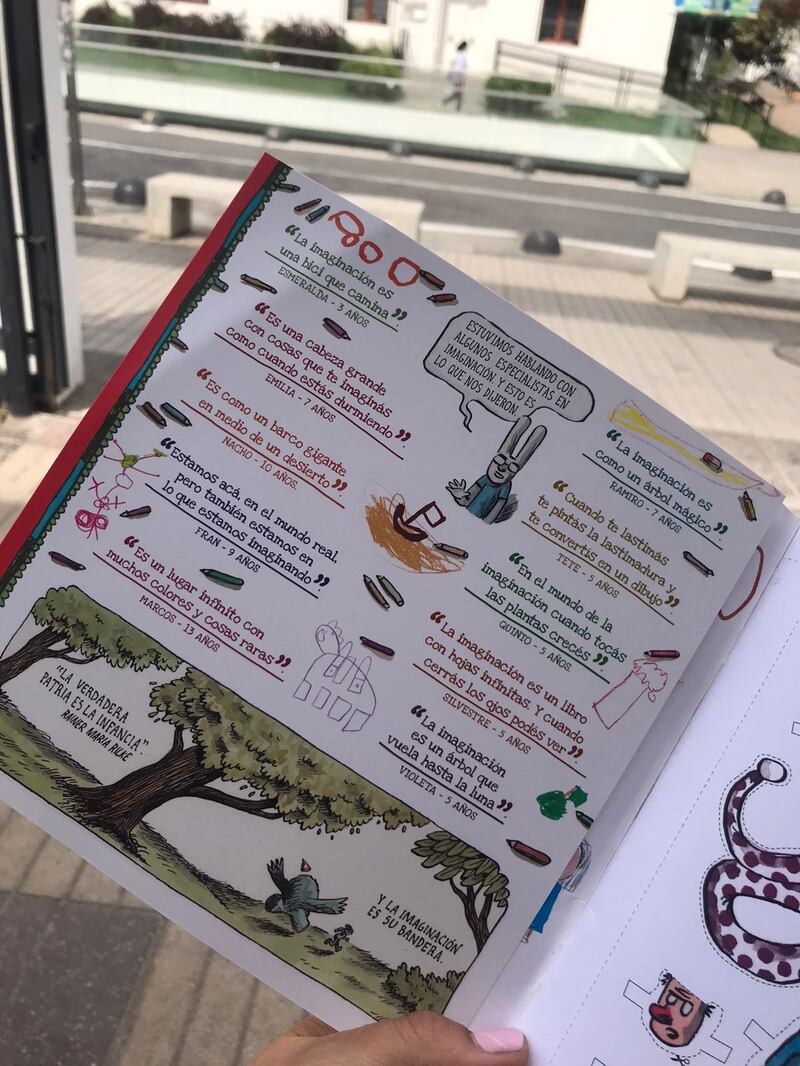 “La imaginación es
una bici que camina”.
ESMERALDA - 3 AÑOS
“Es una cabeza grande
con cosas que te imaginás
como cuando estás durmiendo”
EMILIA - 7 AÑOS
“Es como un barco gigante
en medio de un desierto”.
NACHO - 10 AÑOS.
“Estamos acá, en el mundo real,
pero también estamos en
lo que estamos imaginando”.
FRAN - 9 AÑOS
“Es un lugar infinito con
muchos colores y cosas raras”
MARCOS - 13 AÑOS
ESTUVIMOS HABLANDO CON
ALGUNOS ESPECIALISTAS EN
IMAGINACIÓN Y ESTO ES
LO QUE NOS DIJERON.
“La imaginación es
como un árbol mágico”
RAMIRO - 7 AÑOS
“Cuando te lastinás
te pintás la lastimadura y
te convertís en un dibujo”
TETE - 5 AÑOS
“En el mundo de la
imaginación cuando tocás
las plantas crecés”
QUINTO - 5 AÑOS.
“La imaginación es un libro
con hojas infinitas. Y cuando
cerrás los ojos podés ver”.
SILVESTRE - 5 AÑOS
“La imaginación
es un árbol que
vuela hasta la luna”.
VIOLETA - 5 AÑOS
“LA VERDADERA
PATRIA ES LA INFANCIA”.
RAINER MARIA RILKE
Y LA IMAGINACIÓN
ES SU BANDERA.